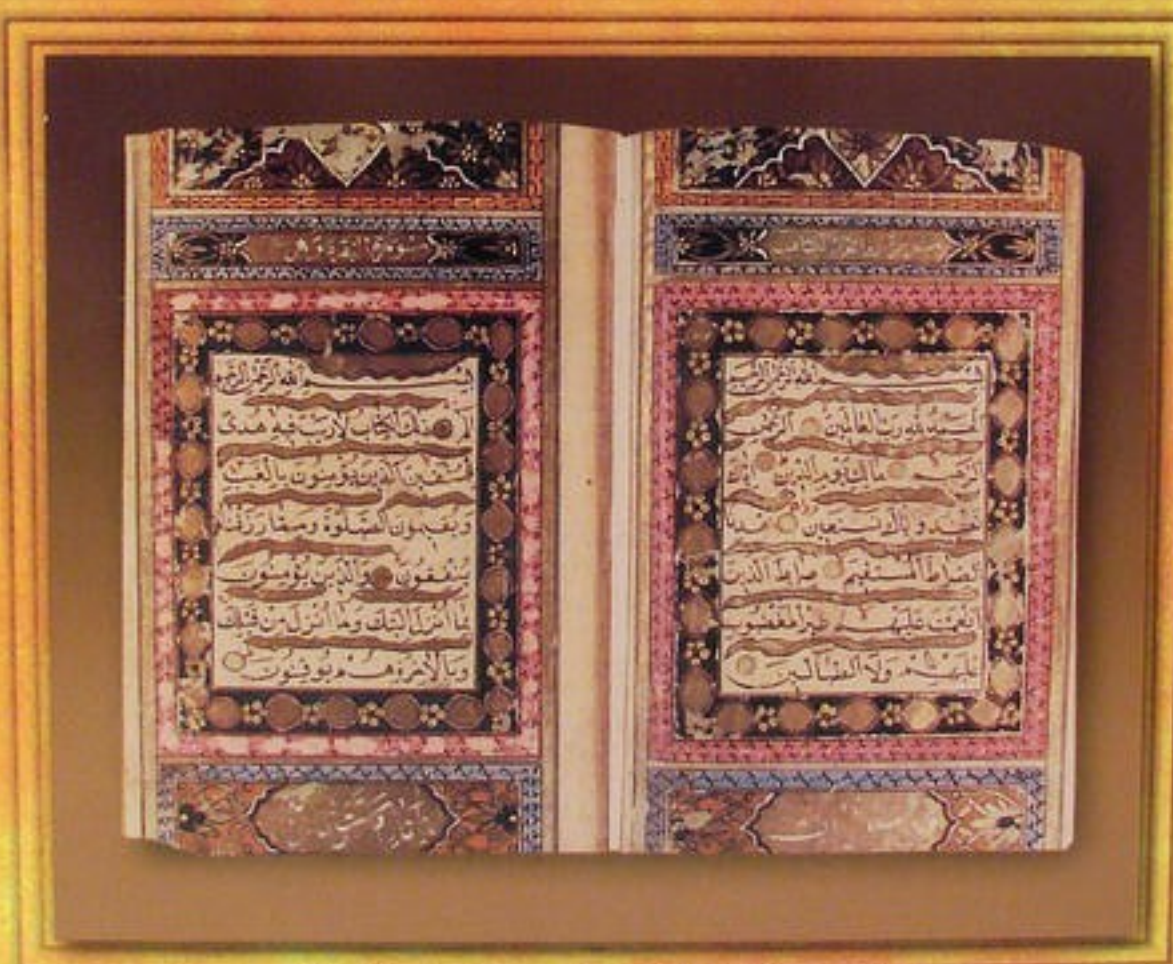 بسم الله الرحمن الرحيم
الحمد لله رب العالمين الرحمن
الرحيم مالك يوم الدين اياك
نعبد و اياك نستعين اهدنا
الصراط المستقيم صراط الذين
انعمت عليهم غير المغضوب
عليهم ولا الضالين
سورة البقرة
بسم الله الرحمن الرحيم
الم ذلك الكتاب لا ريب فيه هدى
للمتقين الذين يؤمنون بالغيب
ويقيمون الصلوة ومما رزقناهم
ينفقون والذين يؤمنون
بما انزل اليك وما انزل من قبلك
وبالاخرة هم يوقنون